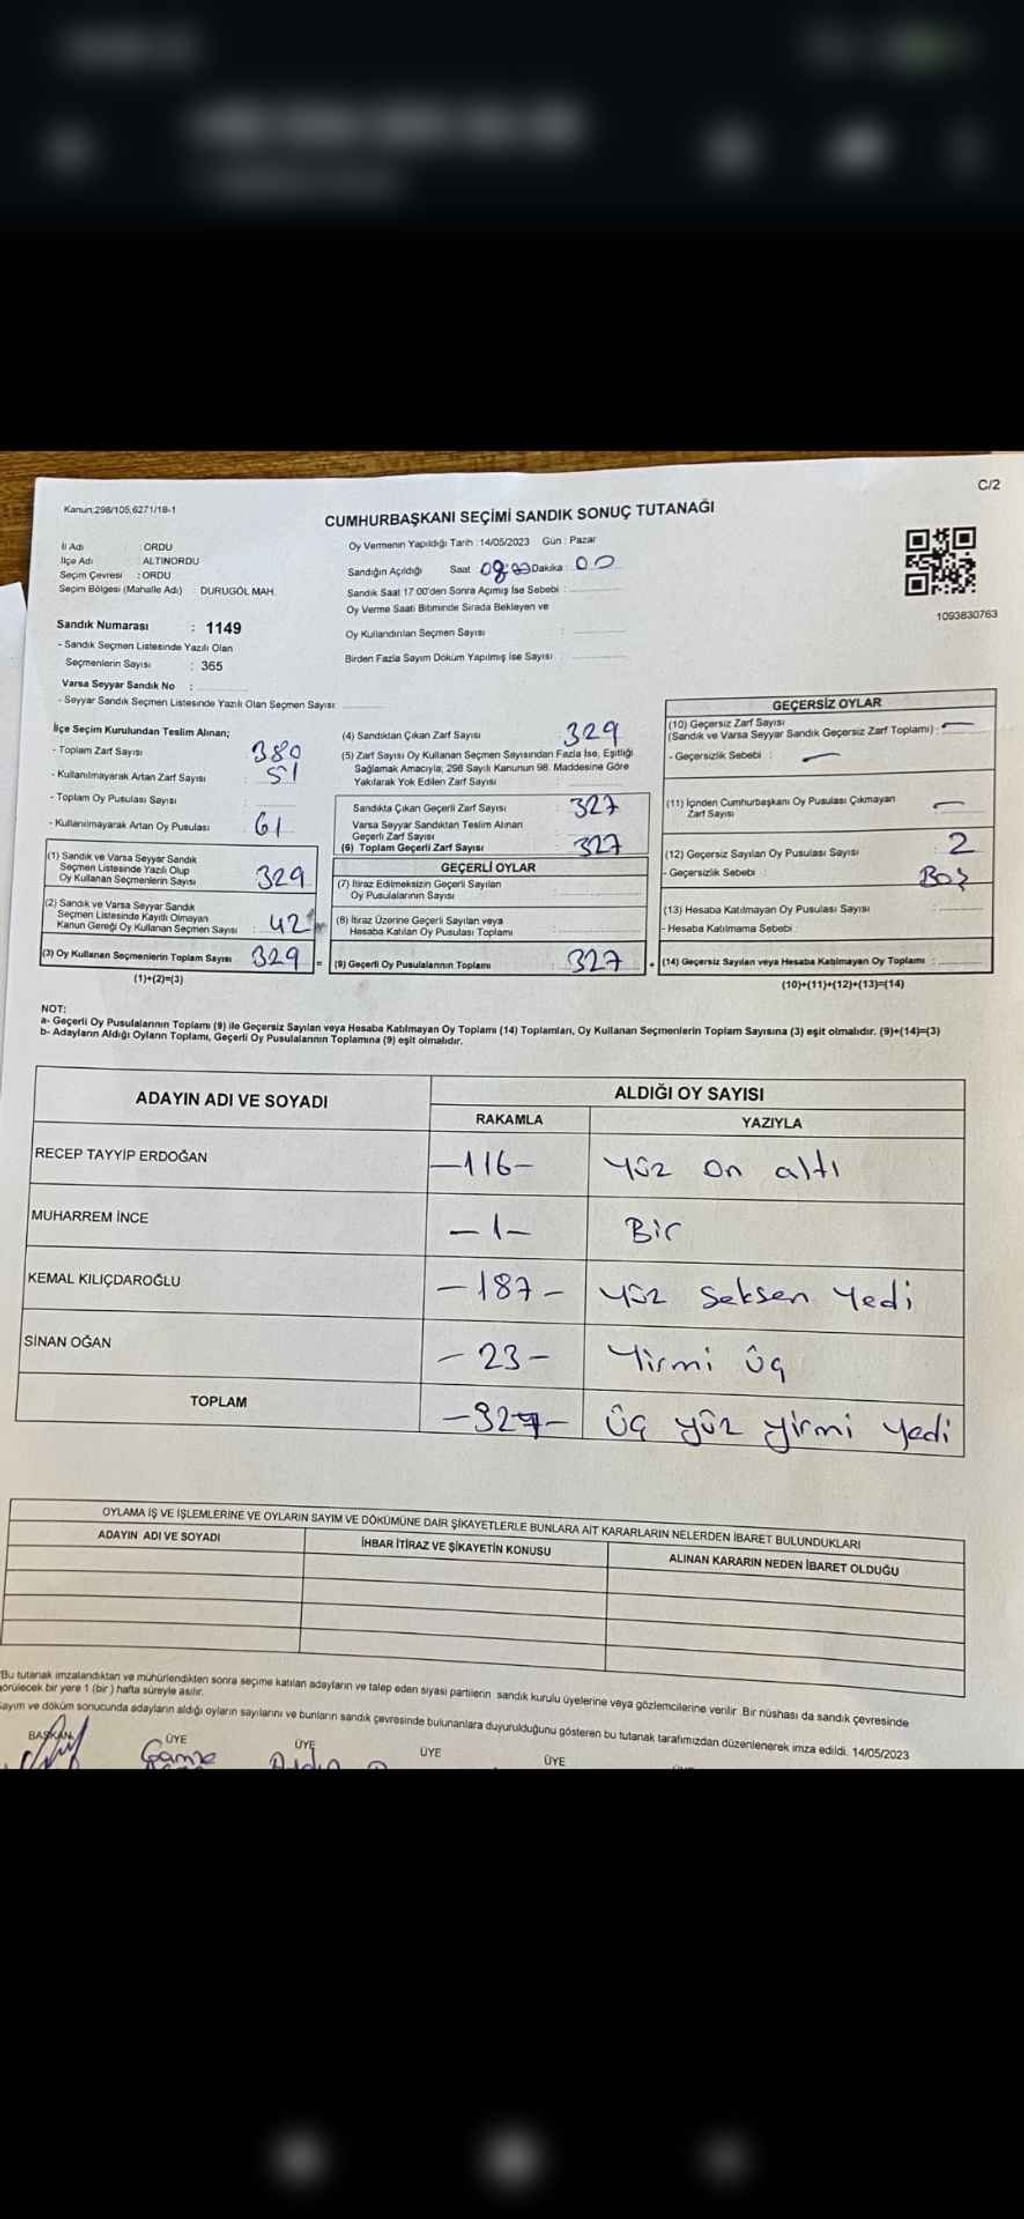 C/2
Kanun:298/105,6271/18-1
CUMHURBAŞKANI SEÇİMİ SANDIK SONUÇ TUTANAĞI
İl Adı : ORDU
İlçe Adı : ALTINORDU
Seçim Çevresi : ORDU
Seçim Bölgesi (Mahalle Adı) : DURUGÖL MAH.
Sandık Numarası : 1149
- Sandık Seçmen Listesinde Yazılı Olan
Seçmenlerin Sayısı : 365
Varsa Seyyar Sandık No :
- Seyyar Sandık Seçmen Listesinde Yazılı Olan Seçmen Sayısı:
Oy Vermenin Yapıldığı Tarih : 14/05/2023 Gün : Pazar
Sandığın Açıldığı Saat 08:00 Dakika : 00
Sandık Saat 17.00'den Sonra Açımış İse Sebebi :
Oy Verme Saati Bitiminde Sırada Bekleyen ve
Oy Kullandırılan Seçmen Sayısı :
Birden Fazla Sayım Döküm Yapılmış İse Sayısı :
1093830763
İlçe Seçim Kurulundan Teslim Alınan;
- Toplam Zarf Sayısı : 380
- Kullanılmayarak Artan Zarf Sayısı : 51
- Toplam Oy Pusulası Sayısı :
- Kullanılmayarak Artan Oy Pusulası : 61
(1) Sandık ve Varsa Seyyar Sandık
Seçmen Listesinde Yazılı Olup
Oy Kullanan Seçmenlerin Sayısı : 329
(2) Sandık ve Varsa Seyyar Sandık
Seçmen Listesinde Kayıtlı Olmayan
Kanun Gereği Oy Kullanan Seçmen Sayısı : 42
(3) Oy Kullanan Seçmenlerin Toplam Sayısı : 329 =
(1)+(2)=(3)
(4) Sandıktan Çıkan Zarf Sayısı : 329
(5) Zarf Sayısı Oy Kullanan Seçmen Sayısından Fazla İse, Eşitliği
Sağlamak Amacıyla; 298 Sayılı Kanunun 98. Maddesine Göre
Yakılarak Yok Edilen Zarf Sayısı :
Sandıkta Çıkan Geçerli Zarf Sayısı : 327
Varsa Seyyar Sandıktan Teslim Alınan
Geçerli Zarf Sayısı :
(6) Toplam Geçerli Zarf Sayısı : 327
GEÇERLİ OYLAR
(7) İtiraz Edilmeksizin Geçerli Sayılan
Oy Pusulalarının Sayısı :
(8) İtiraz Üzerine Geçerli Sayılan veya
Hesaba Katılan Oy Pusulası Toplamı :
(9) Geçerli Oy Pusulalarının Toplamı : 327 +
GEÇERSİZ OYLAR
(10) Geçersiz Zarf Sayısı
(Sandık ve Varsa Seyyar Sandık Geçersiz Zarf Toplamı) : —
- Geçersizlik Sebebi : —
(11) İçinden Cumhurbaşkanı Oy Pusulası Çıkmayan
Zarf Sayısı : —
(12) Geçersiz Sayılan Oy Pusulası Sayısı : 2
- Geçersizlik Sebebi : Boş
(13) Hesaba Katılmayan Oy Pusulası Sayısı :
- Hesaba Katılmama Sebebi :
(14) Geçersiz Sayılan veya Hesaba Katılmayan Oy Toplamı :
(10)+(11)+(12)+(13)=(14)
NOT:
a- Geçerli Oy Pusulalarının Toplamı (9) ile Geçersiz Sayılan veya Hesaba Katılmayan Oy Toplamı (14) Toplamları, Oy Kullanan Seçmenlerin Toplam Sayısına (3) eşit olmalıdır. (9)+(14)=(3)
b- Adayların Aldığı Oyların Toplamı, Geçerli Oy Pusulalarının Toplamına (9) eşit olmalıdır.
ADAYIN ADI VE SOYADI
ALDIĞI OY SAYISI
RAKAMLA YAZIYLA
RECEP TAYYİP ERDOĞAN —116— yüz on altı
MUHARREM İNCE —1— Bir
KEMAL KILIÇDAROĞLU —187— yüz seksen yedi
SİNAN OĞAN —23— Yirmi üç
TOPLAM —327— üç yüz yirmi yedi
OYLAMA İŞ VE İŞLEMLERİNE VE OYLARIN SAYIM VE DÖKÜMÜNE DAİR ŞİKAYETLERLE BUNLARA AİT KARARLARIN NELERDEN İBARET BULUNDUKLARI
ADAYIN ADI VE SOYADI İHBAR İTİRAZ VE ŞİKAYETİN KONUSU ALINAN KARARIN NEDEN İBARET OLDUĞU
Bu tutanak imzalandıktan ve mühürlendikten sonra seçime katılan adayların ve talep eden siyasi partilerin sandık kurulu üyelerine veya gözlemcilerine verilir. Bir nüshası da sandık çevresinde
görülecek bir yere 1 (bir) hafta süreyle asılır.
Sayım ve döküm sonucunda adayların aldığı oyların sayılarını ve bunların sandık çevresinde bulunanlara duyurulduğunu gösteren bu tutanak tarafımızdan düzenlenerek imza edildi. 14/05/2023
BAŞKAN ÜYE ÜYE ÜYE ÜYE
Gamze